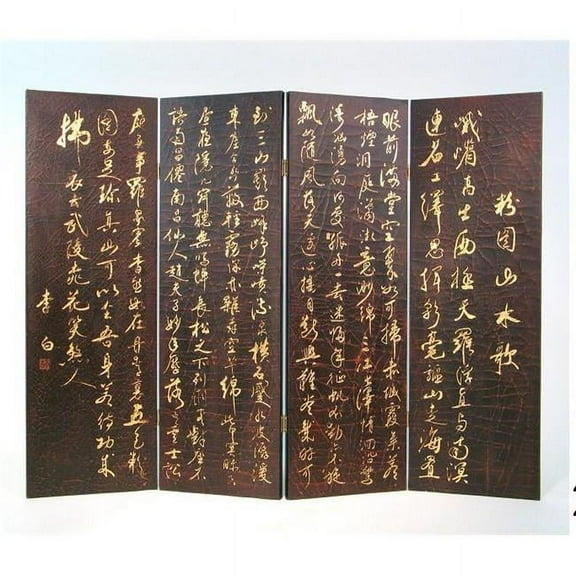 粉图山水歌
峨嵋高出西極天羅浮直与南溟
連名工繹思揮彩毫驅山走海置
眼前滿堂空翠如可掃赤城霞气蒼
梧煙洞庭瀟湘意渺綿三江七澤情洄沿驚
濤洶湧向何處孤舟一去迷歸年征帆不動亦不旋
飄如隨風落天邊心搖目斷興難盡幾時可
到三山巔西峰崢嶸噴流泉橫石蹙水波潺湲
東崖合沓蔽輕霧深林雜樹空芊綿此中冥昧失
晝夜隱几寂聽無鳴蟬長松之下列羽客對座不
語南昌仙南昌仙人趙夫子妙年歷落青雲士訟
庭無事羅眾賓杳然如在丹青裏五色粉
圖安足珍真山可以全吾身若待功成
拂衣去武陵桃花笑煞人
李白